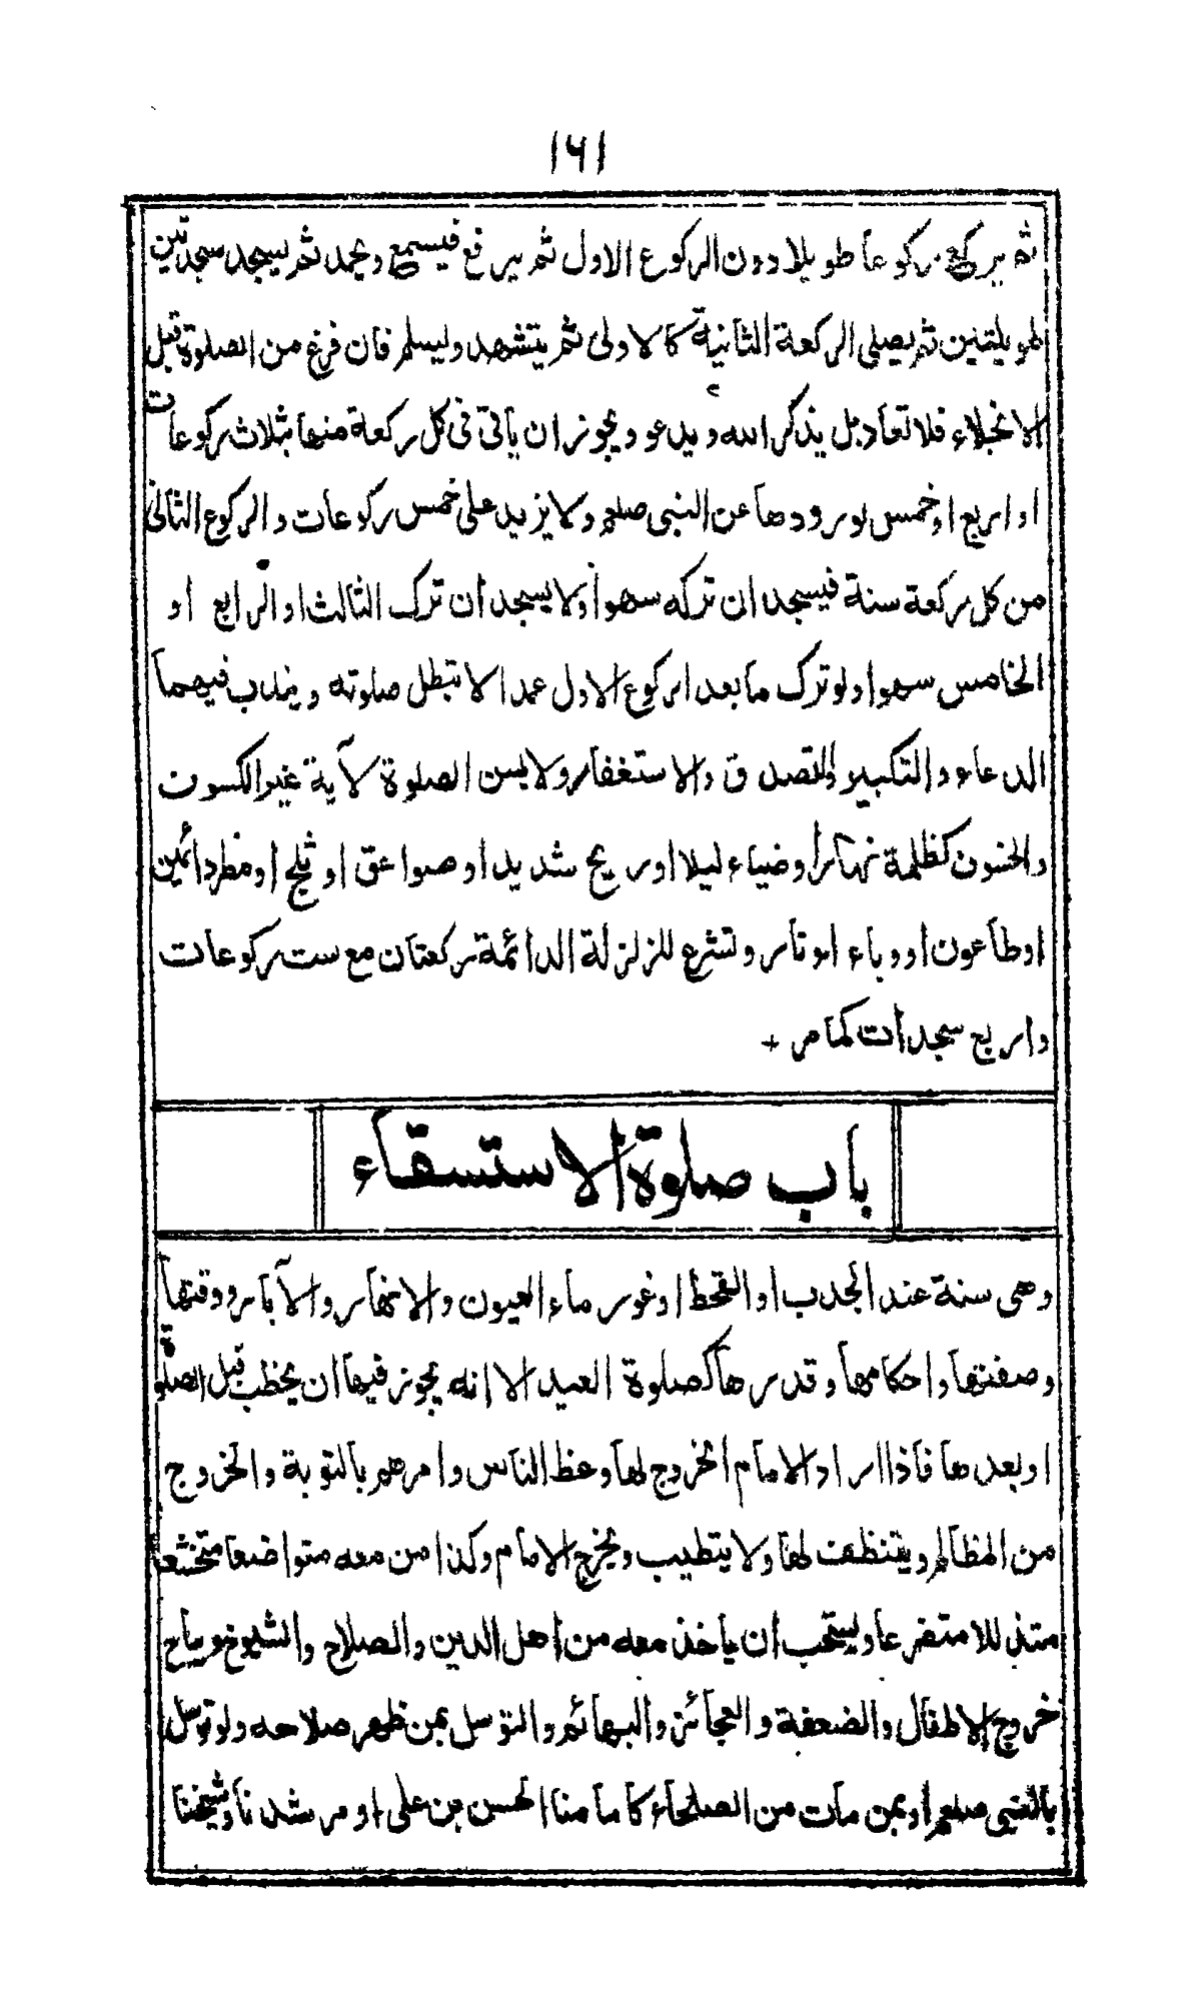 ١٦١
ثم يركع ركوعا طويلا دون الركوع الاول ثم يرفع فيسمع ويحمد ثم يسجد سجدتين
طويلتين ثم يصلى الركعة الثانية كالاولى ثم يتشهد وليسلم فان فرغ من الصلوة قبل
الانجلاء فلا تعاد بل يذكر الله ويدعو ويجوز ان ياتى فى كل ركعة منها بثلاث ركوعات
او اربع او خمس لورودها عن النبى صلعم ولا يزيد على خمس ركوعات والركوع الثانى
من كل ركعة سنة فيسجد ان تركه سهوا ولا يسجد ان ترك الثالث او الرابع او
الخامس سهوا ولو ترك ما بعد الركوع الاول عمدا لا تبطل صلوته ويندب فيهما
الدعاء والتكبير والتصدق والاستغفار ولا يسن الصلوة لآية غير الكسوف
والخسوف كظلمة نهارا وضياء ليلا او ريح شديد او صواعق او ثلج او مطر دائمين
او طاعون او وباء او نار وتشرع للزلزلة الدائمة ركعتان مع ست ركوعات
واربع سجدات كما مر +
باب صلوة الاستسقاء
وهى سنة عند الجدب او القحط او غور ماء العيون والانهار والآبار ووقتها
وصفتها واحكامها وقدرها كصلوة العيد الا انه يجوز فيها ان يخطب قبل الصلوة
او بعدها فاذا اراد الامام الخروج لها وعظ الناس وامرهم بالتوبة والخروج
من المظالم ويتنظف لها ولا يتطيب ويخرج الامام وكذا من معه متواضعا متخشعا
متذللا متضرعا ويستحب ان ياخذ معه من اهل الدين والصلاح والشيوخ ويباح
خروج الاطفال والضعفة والعجائز والبهائم والتوسل بمن ظهر صلاحه ولو توسل
بالنبى صلعم او بمن مات من الصلحاء كامامنا الحسن بن على او مرشدنا وشيخنا